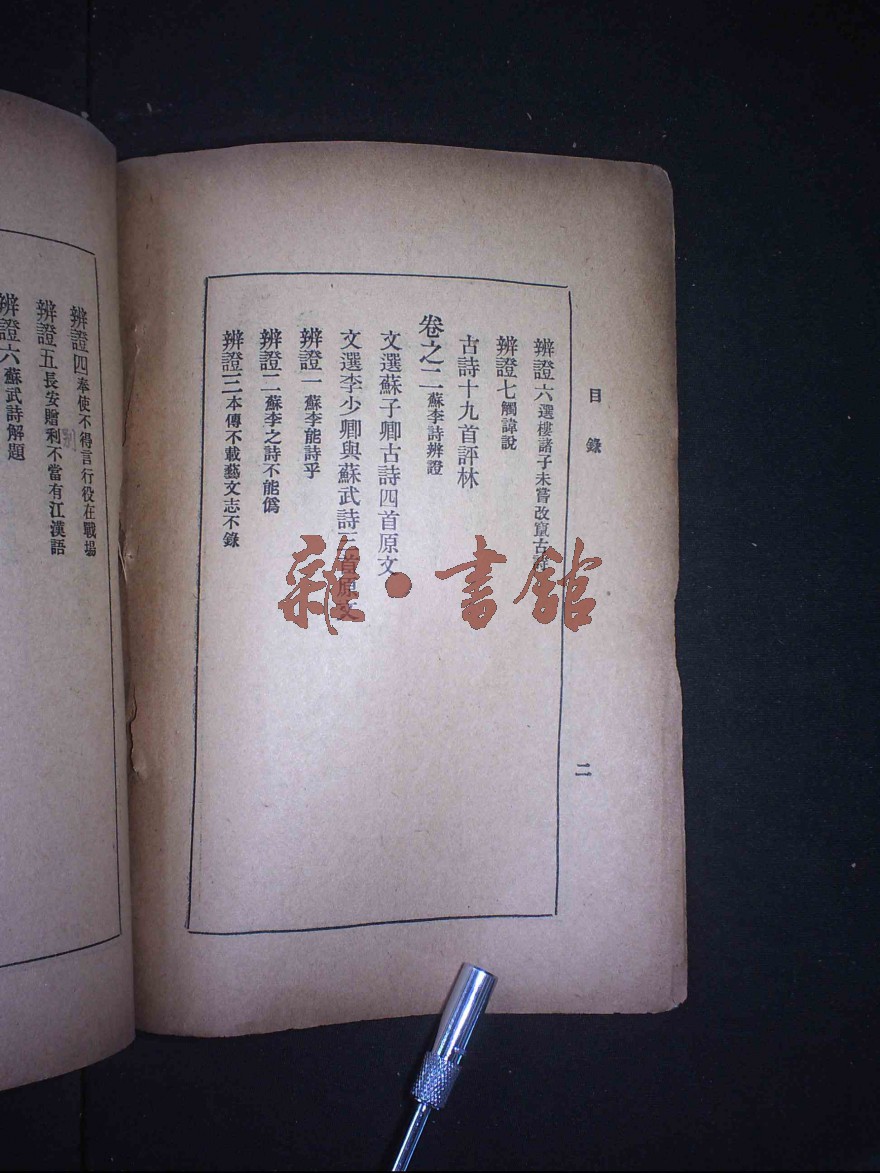 目錄
二
辨證六選樓諸子未嘗改竄古詩
辨證七觸諱說
古詩十九首評林
卷之二蘇李詩辨證
文選蘇子卿古詩四首原文
文選李少卿與蘇武詩三首原文
辨證一蘇李能詩乎
辨證二蘇李之詩不能僞
辨證三本傳不載藝文志不錄
辨證四奉使不得言行役在戰場
辨證五長安贈別不當有江漢語
辨證六蘇武詩解題
雜·書館